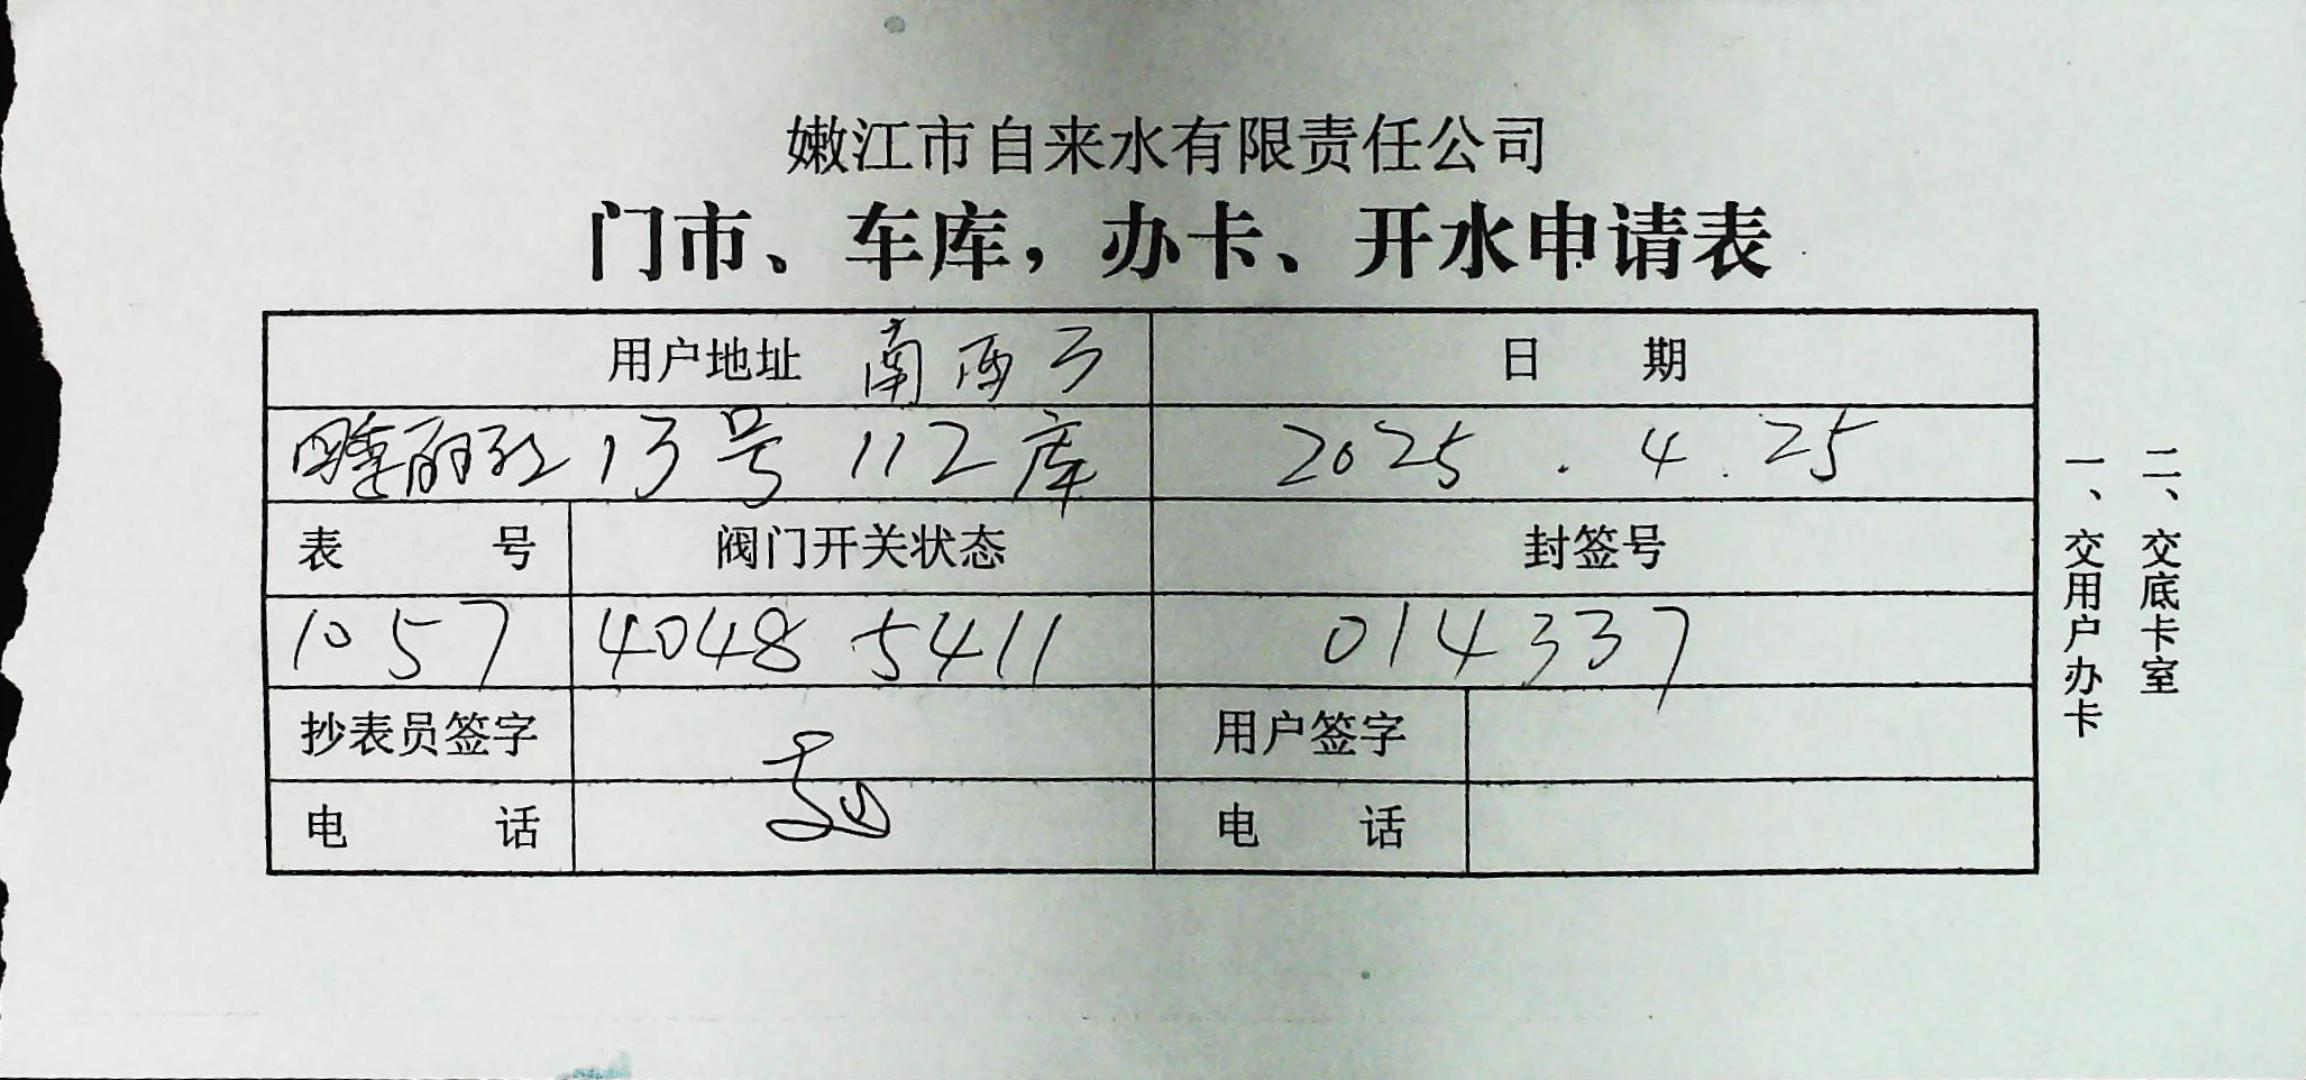 嫩江市自来水有限责任公司
门市、车库，办卡、开水申请表
用户地址 南 日 期
13号 112库 2025.4.25
表 号 阀门开关状态 封签号
1057 4048 5411 014337
抄表员签字 用户签字
电 话 电 话
一、交用户办卡
二、交底卡室